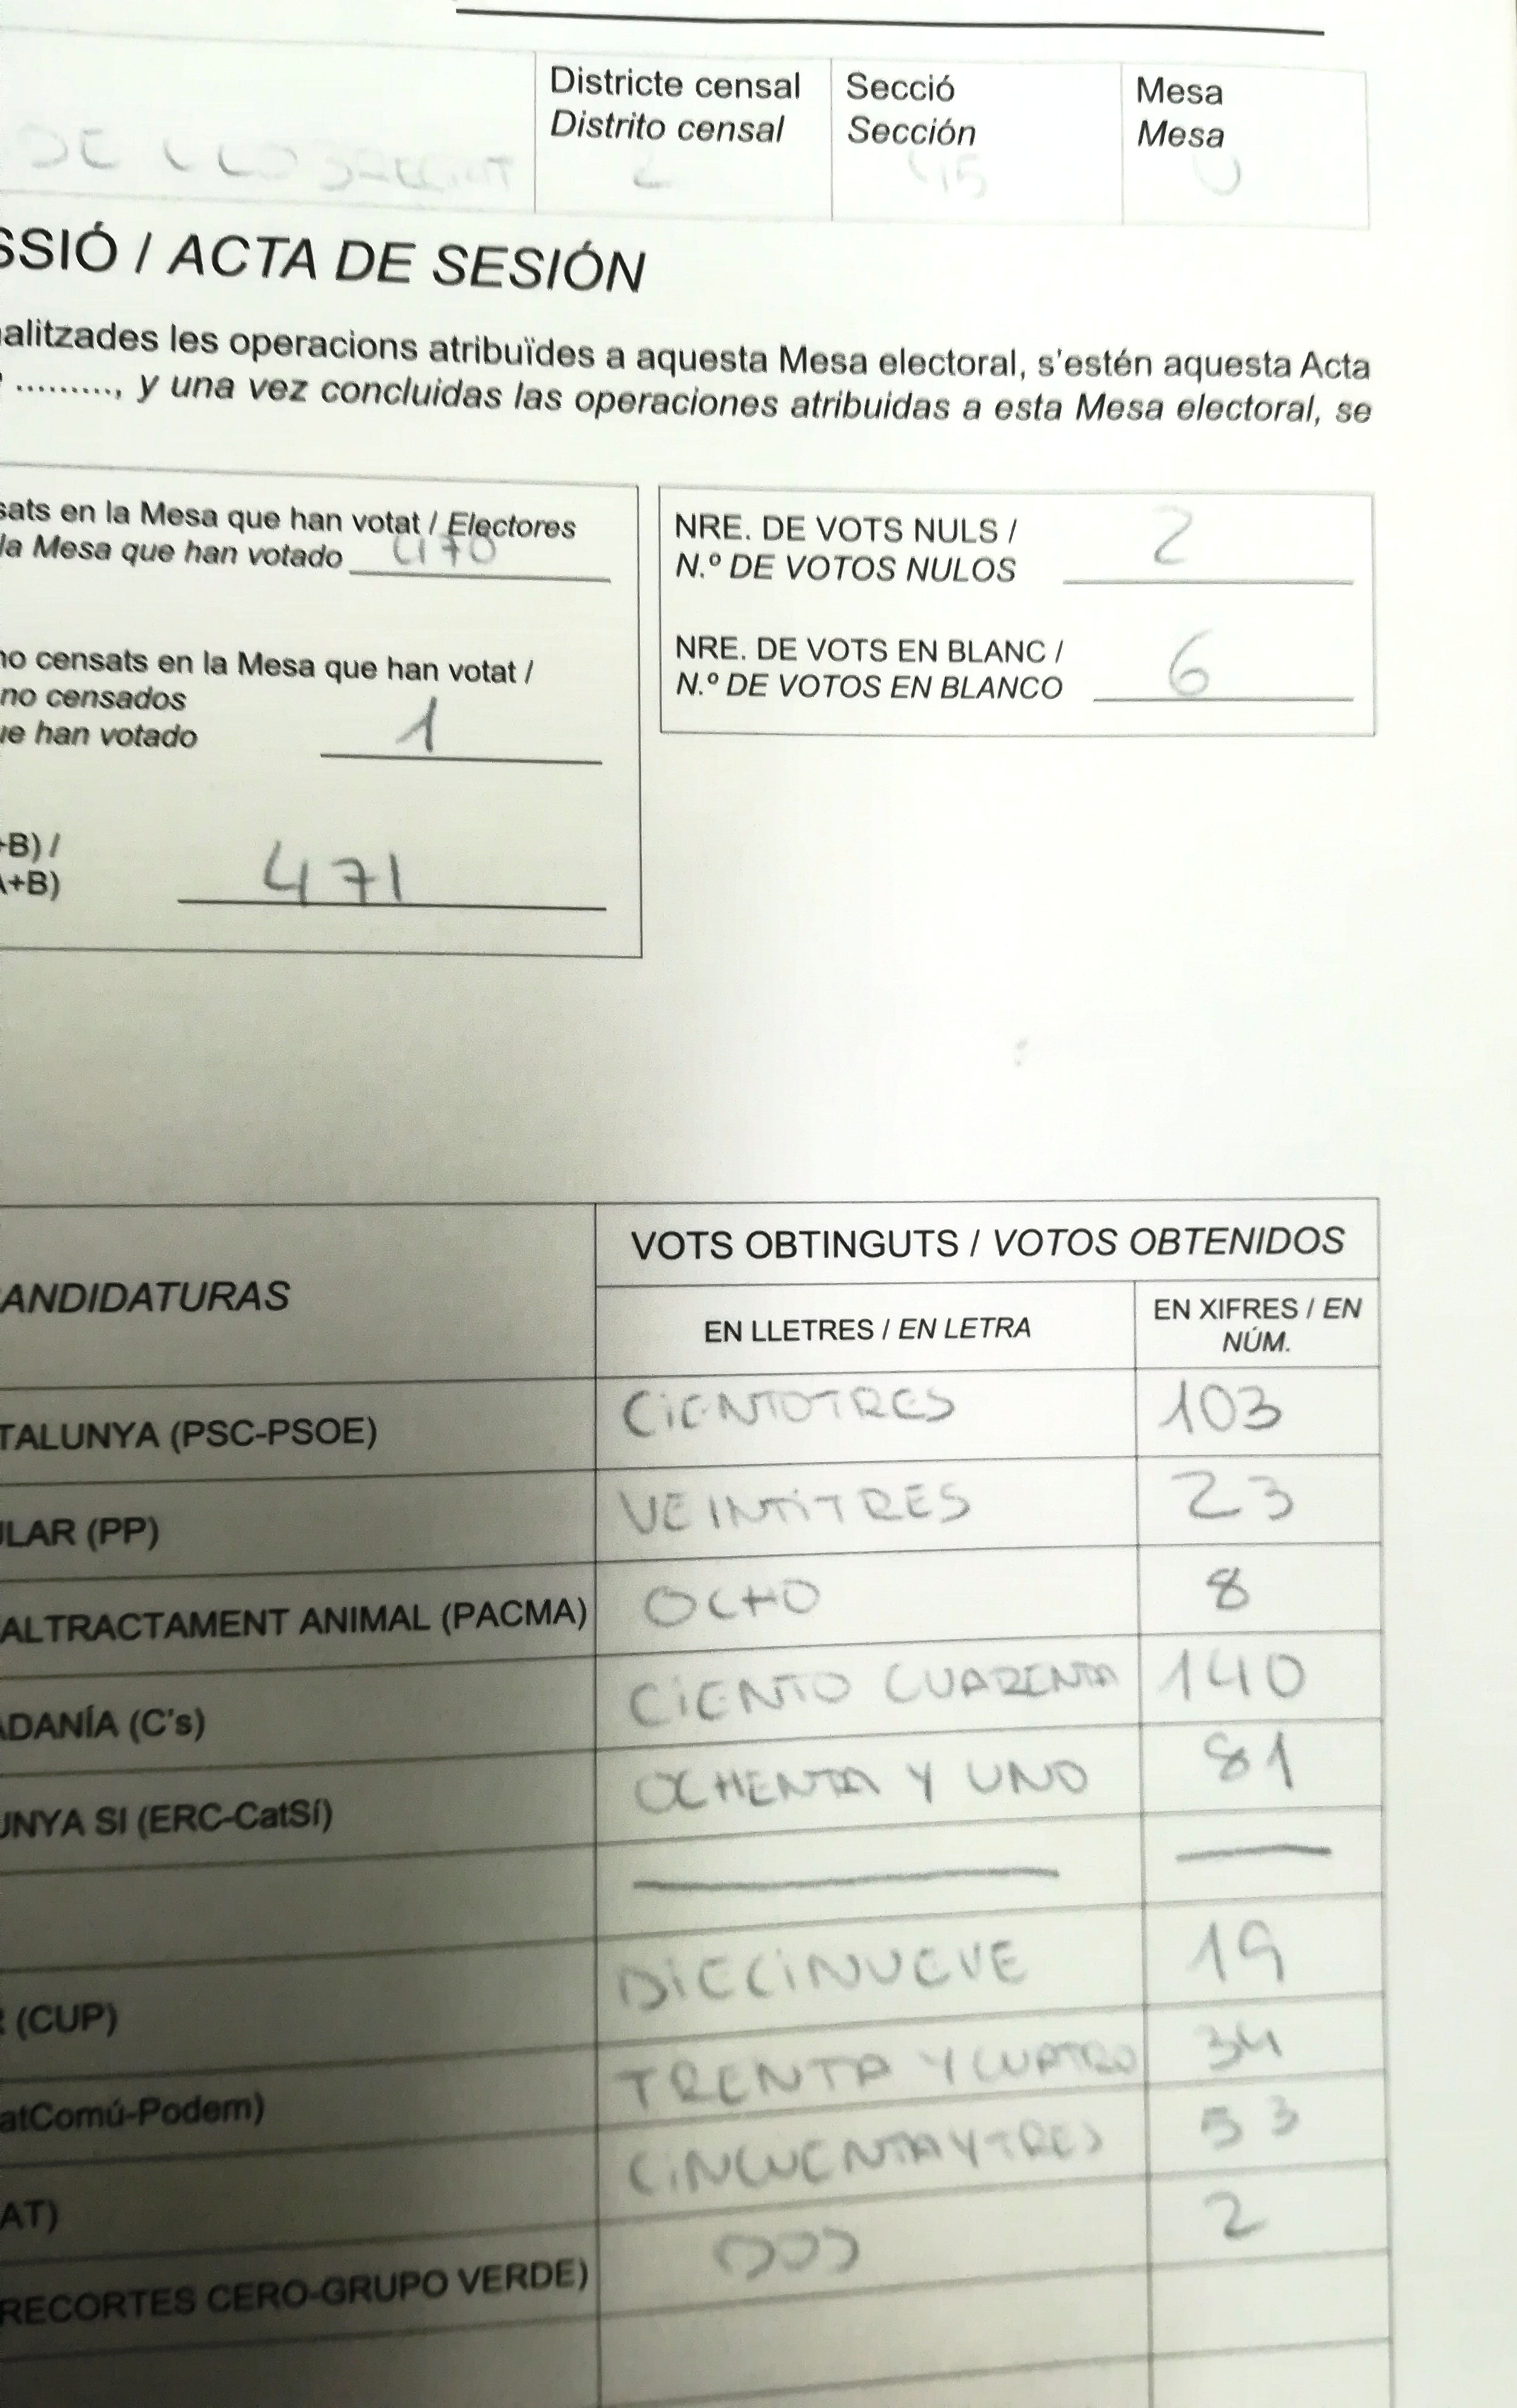 Districte censal
Distrito censal
2
Secció
Sección
Mesa
Mesa
U
DE LLOBREGAT
SSIÓ / ACTA DE SESIÓN
alitzades les operacions atribuïdes a aquesta Mesa electoral, s'estén aquesta Acta
........., y una vez concluidas las operaciones atribuidas a esta Mesa electoral, se
sats en la Mesa que han votat / Electores
la Mesa que han votado 470
no censats en la Mesa que han votat /
no censados
ue han votado 1
+B) /
A+B) 471
NRE. DE VOTS NULS / 2
N.º DE VOTOS NULOS
NRE. DE VOTS EN BLANC / 6
N.º DE VOTOS EN BLANCO
CANDIDATURAS
VOTS OBTINGUTS / VOTOS OBTENIDOS
EN LLETRES / EN LETRA
EN XIFRES / EN
NÚM.
TALUNYA (PSC-PSOE) CIENTOTRES 103
ULAR (PP) VEINTITRES 23
ALTRACTAMENT ANIMAL (PACMA) OCHO 8
ADANÍA (C's) CIENTO CUARENTA 140
UNYA SI (ERC-CatSí) OCHENTA Y UNO 81
R (CUP) DIECINUEVE 19
atComú-Podem) TRENTA Y CUATRO 34
AT) CINCUENTA Y TRES 53
RECORTES CERO-GRUPO VERDE) DOS 2